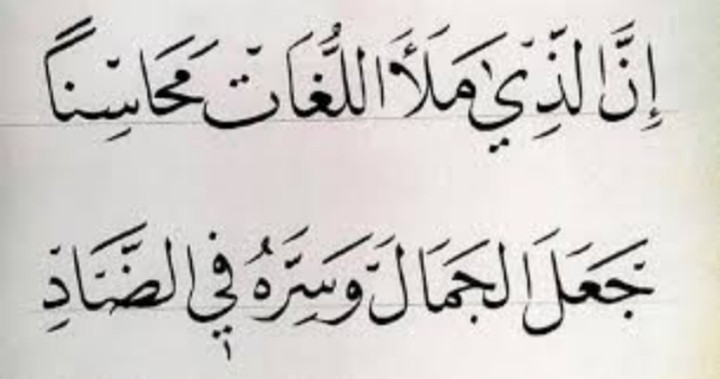 إِنَّ الَّذِي مَلَأَ اللُّغَاتِ مَحَاسِنًا
جَعَلَ الجَمَالَ وَسِرَّهُ فِي الضَّادِ
١